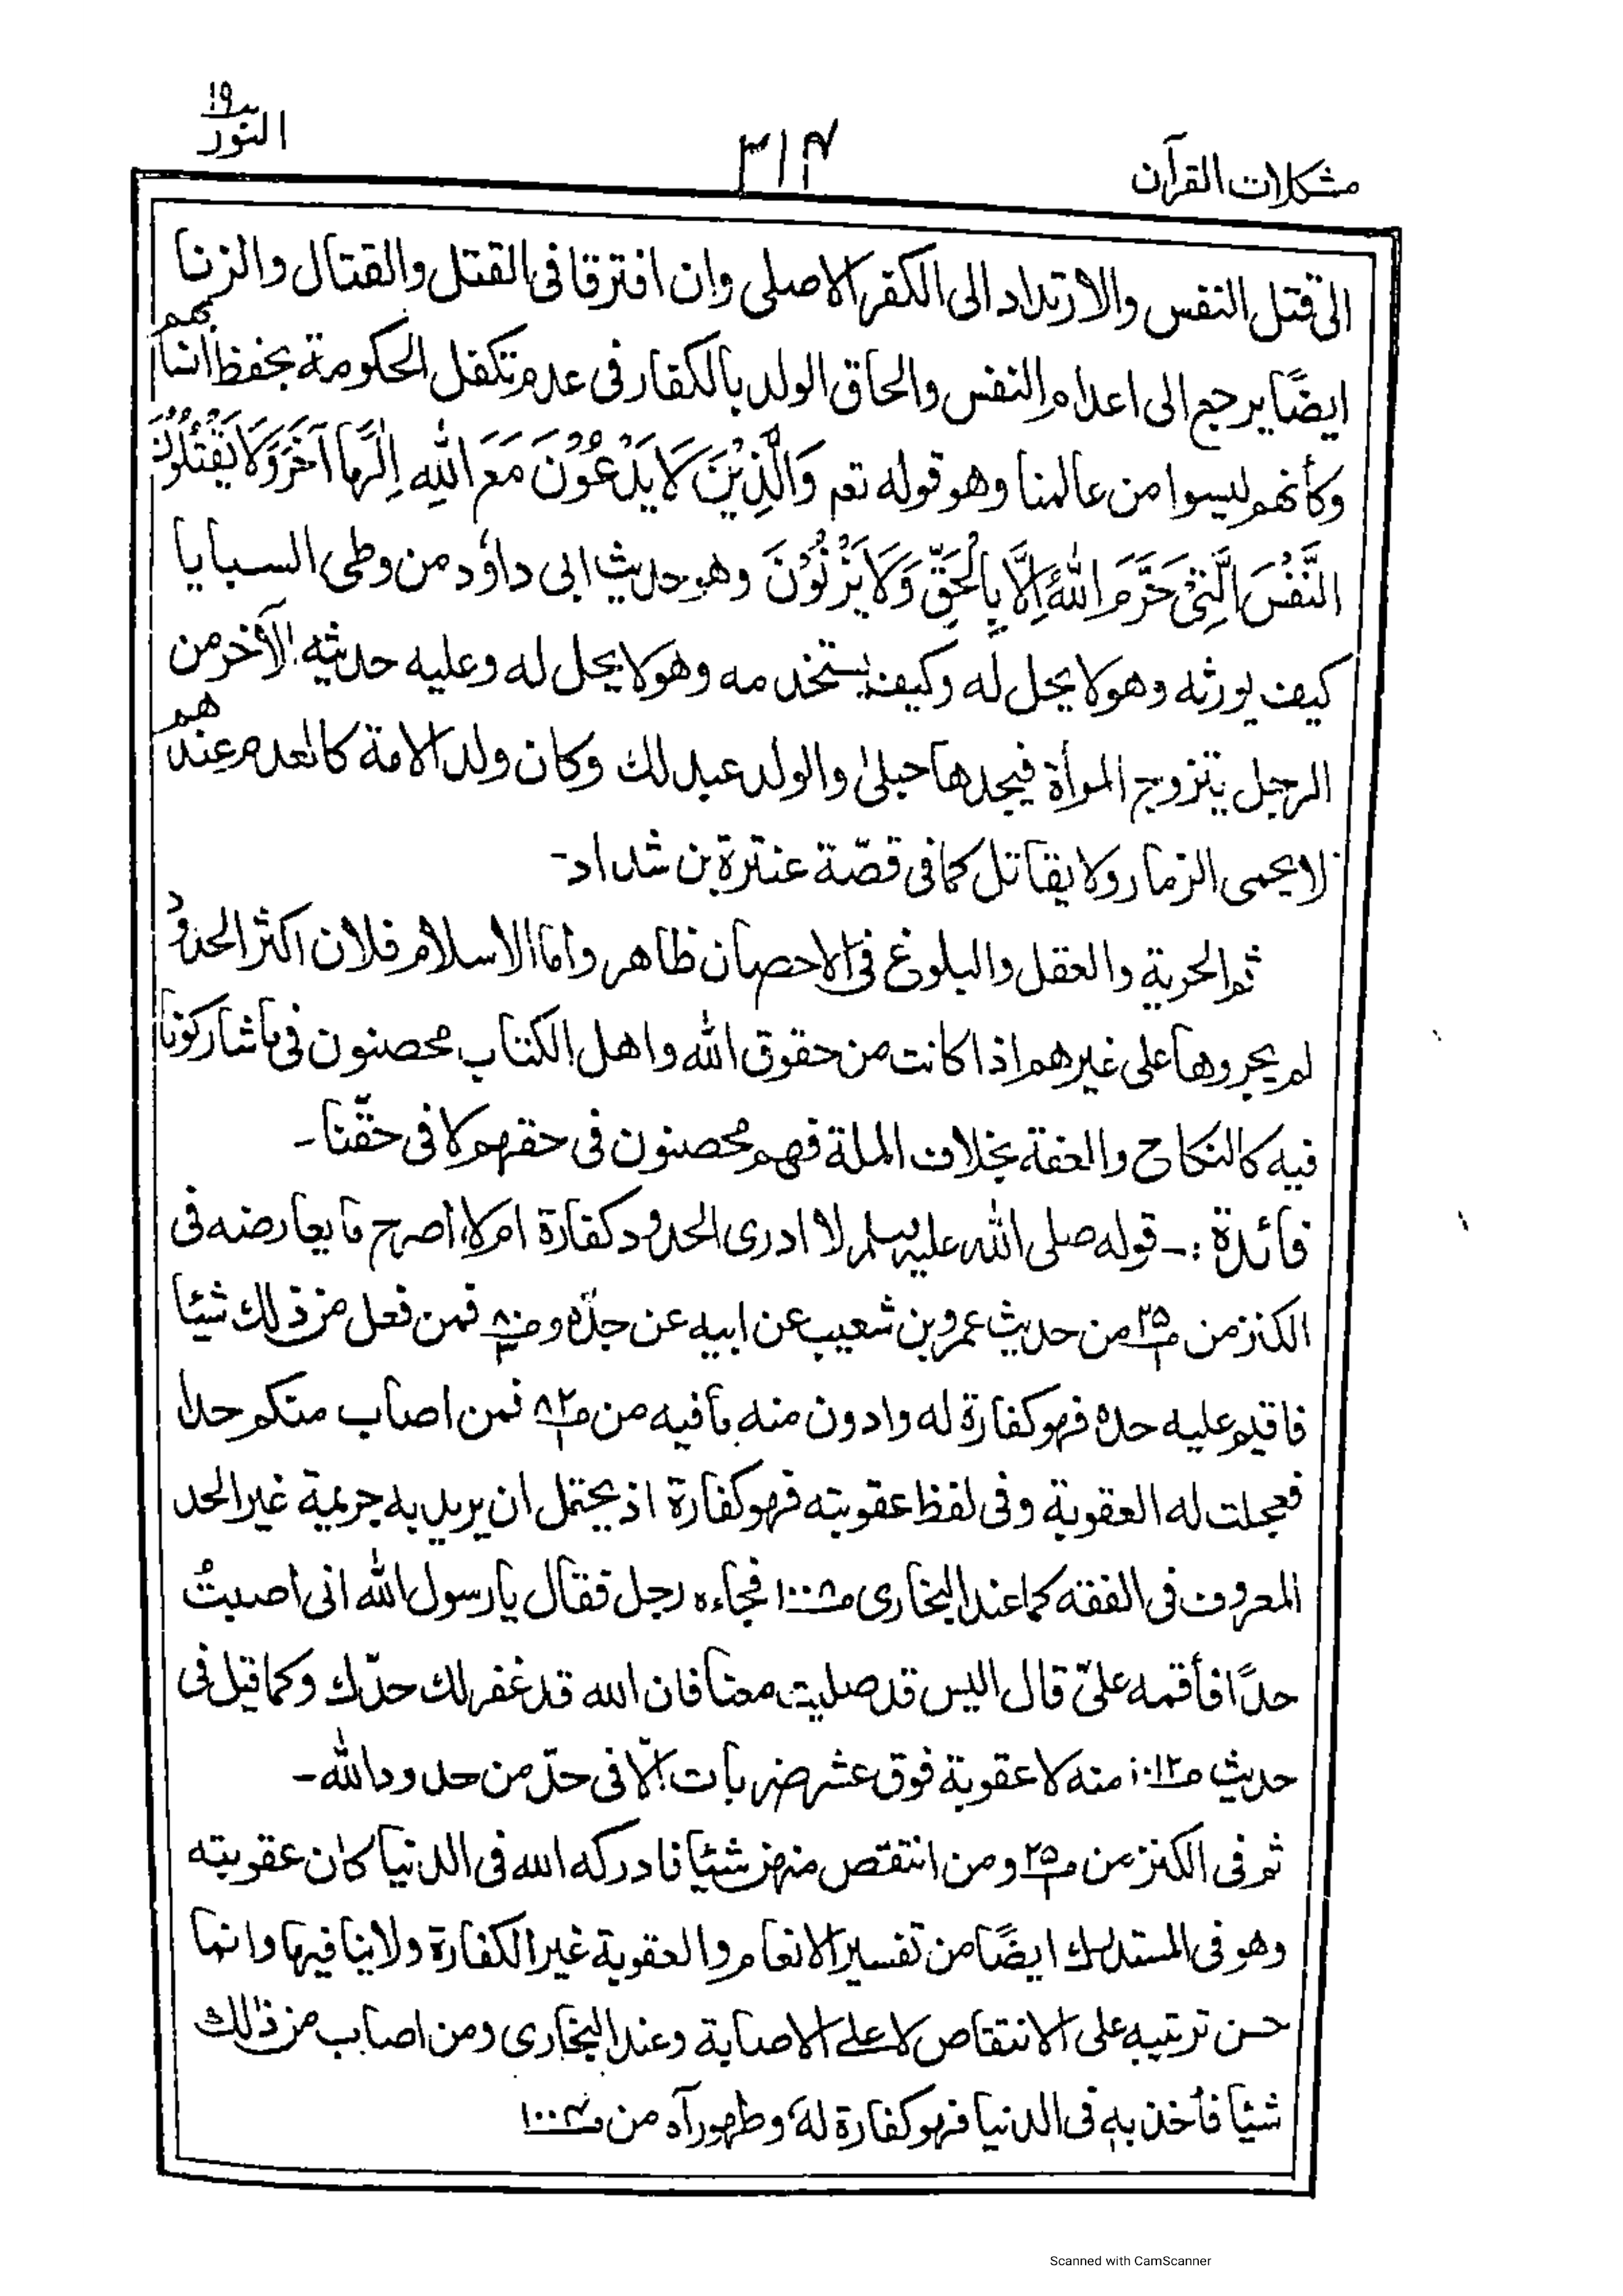 مشكلات القرآن
٣١٤
النور
١٩
الى قتل النفس والارتداد الى الكفر الاصلى وان افترقا فى القتل والقتال والزنا
ايضًا يرجع الى اعدام النفس والحاق الولد بالكفار فى عدم تكفل الحكومة بحفظ انسابهم
وكأنهم ليسوا من عالمنا وهو قوله تعم وَالَّذِيْنَ لَا يَدْعُوْنَ مَعَ اللّٰهِ اِلٰهًا آخَرَ وَلَا يَقْتُلُوْنَ
النَّفْسَ الَّتِىْ حَرَّمَ اللّٰهُ اِلَّا بِالْحَقِّ وَلَا يَزْنُوْنَ وهو حديث ابى داؤد من وطى السبايا
كيف يورثه وهو لا يحل له وكيف يستخدمه وهو لا يحل له وعليه حديثه الآخر من
الرجل يتزوج المرأة فيجدها حبلىٰ والولد عبد لك وكان ولد الامة كالعدم عندهم
لا يحمى الزمار ولا يقاتل كما فى قصّة عنترة بن شداد-
ثم الحرية والعقل والبلوغ فى الاحصان ظاهر واما الاسلام فلان اكثر الحدود
لم يجروها على غيرهم اذا كانت من حقوق اللّٰه واهل الكتاب محصنون فى ما شاركونا
فيه كالنكاح والعفة بخلاف الملة فهم محصنون فى حقهم لا فى حقّنا-
فائدة :- قوله صلى اللّٰه عليه وسلم لا ادرى الحدود كفارة ام لا، اصرح ما يعارضه فى
الكنز من م٢٥/١ من حديث عمرو بن شعيب عن ابيه عن جدّه و م٨٠/٣ فمن فعل من ذلك شيئا
فاقيم عليه حده فهو كفارة له وادون منه ما فيه من م٨٢/١ فمن اصاب منكم حدا
فعجلت له العقوبة وفى لفظ عقوبته فهو كفارة اذ يحتمل ان يريد به جريمة غير الحد
المعروف فى الفقه كما عند البخارى م١٠٠٨ فجاءه رجل فقال يا رسول اللّٰه انى اصبتُ
حدًا فأقمه علىّ قال اليس قد صليت معنا فان الله قد غفر لك حدّك وكما قيل فى
حديث م١٠١٢ منه لا عقوبة فوق عشر ضربات الّا فى حدّ من حدود اللّٰه-
ثم فى الكنز من م٢٥/١ ومن انتقص منهن شيئا فادركه الله فى الدنيا كان عقوبته
وهو فى المستدرك ايضًا من تفسير الانعام والعقوبة غير الكفارة ولا ينافيها وانما
حسن ترتيبه على الانتقاص لا على الاصابة وعند البخارى ومن اصاب من ذٰلك
شيئا فأخذ به فى الدنيا فهو كفارة له وطهور آه من م١٠٠٤
Scanned with CamScanner